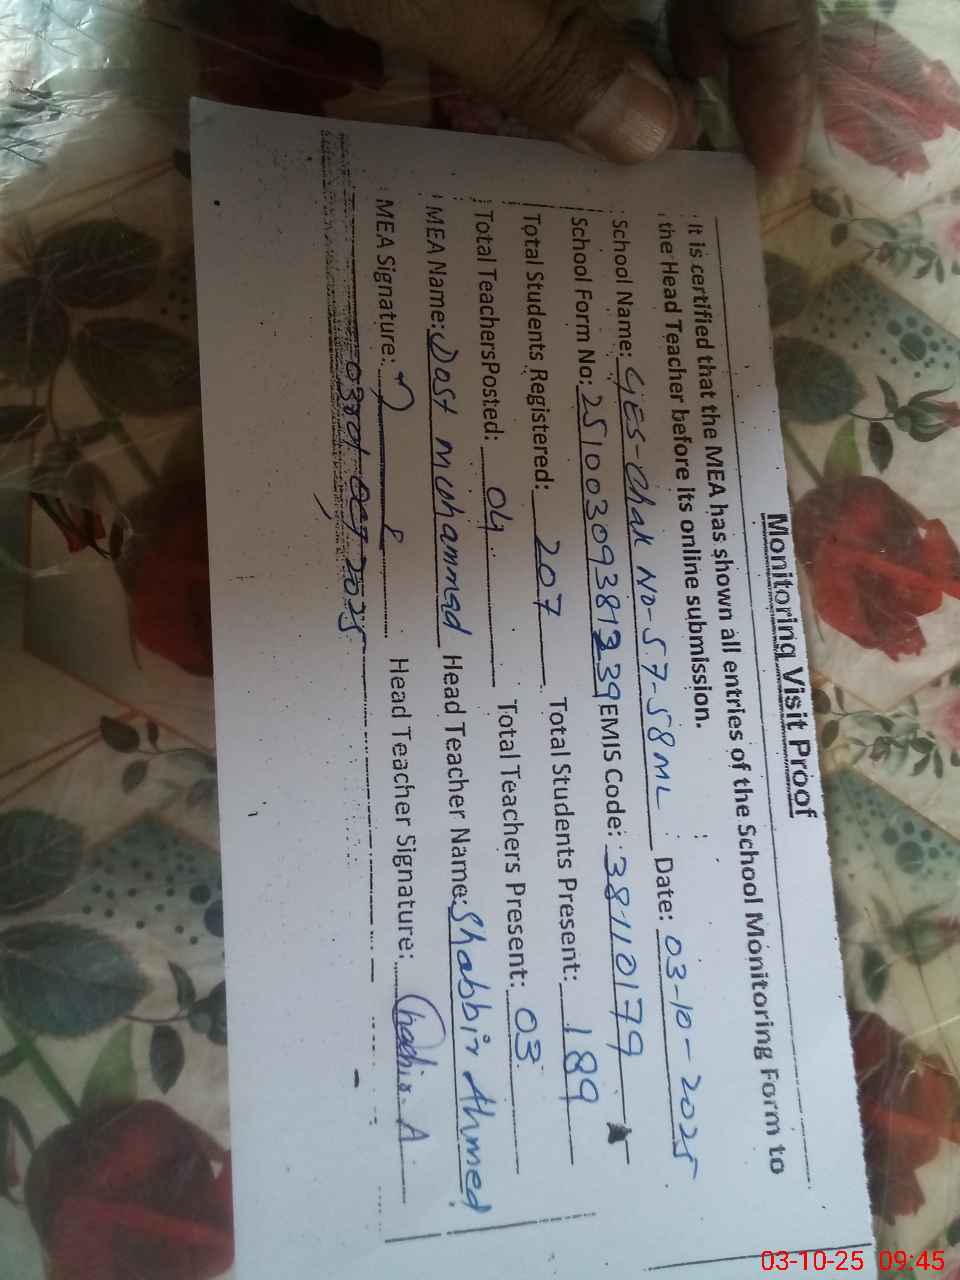 Monitoring Visit Proof
It is certified that the MEA has shown all entries of the School Monitoring Form to
the Head Teacher before its online submission.
School Name: GES-Chak No-57-58ML Date: 03-10-2025
School Form No: EMIS Code: 38110179
Total Students Registered: 207 Total Students Present: 189
Total Teachers Posted: 04 Total Teachers Present: 03
MEA Name: Dost Muhammad Head Teacher Name: Shabbir Ahmed
MEA Signature: Head Teacher Signature:
03rd Oct 2025
03-10-25 09:45